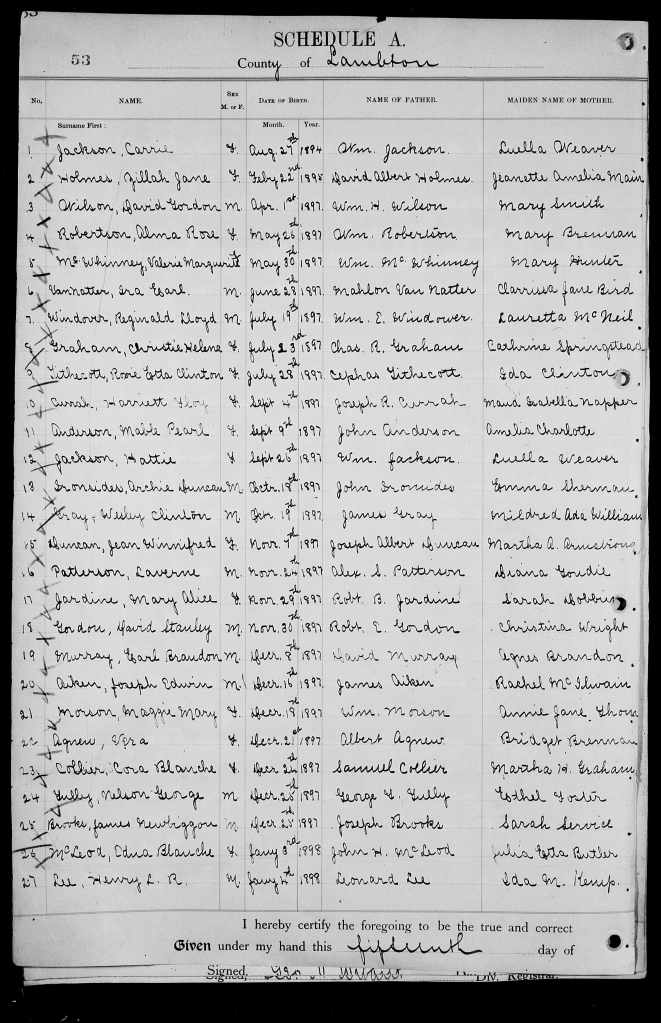 53
SCHEDULE A.
County of Lambton
No. NAME. SEX M. or F. DATE OF BIRTH. NAME OF FATHER. MAIDEN NAME OF MOTHER.
Surname First: Month. Year.
1 Jackson, Carrie F. Aug. 27th 1894 Wm. Jackson. Luella Weaver
2 Holmes, Zillah Jane F. Feby 22nd 1895 David Albert Holmes. Jeanette Amelia Main
3 Wilson, David Gordon M. Apr. 1st 1897 Wm. H. Wilson Mary Smith
4 Robertson, Alma Rose F. May 26th 1897 Wm. Robertson. Mary Brennan
5 McWhinney, Valerie Marguerite F May 30th 1897 Wm. McWhinney Mary Hunter
6 VanNatter, Ira Earl. M. June 28th 1897 Mahlon Van Natter Clarrissa Jane Bird
7. Windover, Reginald Lloyd M July 19th 1897 Wm. E. Windover. Lauretta McNeil
8 Graham, Christie Helena F. July 23rd 1897 Chas. R. Graham Cathrine Springstead
9 Tithecott, Rosie Etta Clinton F. July 28th 1897 Cephas Tithecott. Ida Clinton
10 Currah, Harriett Floy F. Sept 4th 1897 Joseph R. Currah Maud Isabella Napper
11 Anderson, Mable Pearl F. Sept 9th 1897 John Anderson Amelia Charlotte
12 Jackson, Hattie F Sept 26th 1897 Wm. Jackson. Luella Weaver
13 Ironsides, Archie Duncan M. Octr. 18th 1897 John Ironsides Emma Sherman
14 Gray, Wesley Clinton M Oct. 19th 1897 James Gray Mildred Ada William
15 Duncan, Jean Winnifred F. Nov. 7th 1897 Joseph Albert Duncan Martha A. Armstrong
16 Patterson, Laverne M. Nov. 24th 1897 Alex. S. Patterson Diana Goudie
17 Jardine, Mary Alice F. Nov. 29th 1897 Robt. B. Jardine Sarah Dobbin
18 Gordon, David Stanley M. Nov. 30th 1897 Robt. E. Gordon Christina Wright
19 Murray, Earl Brandon M. Decr. 8th 1897 David Murray Agnes Brandon
20 Aiken, Joseph Edwin M. Decr. 16th 1897 James Aiken Rachel McIlwain
21 Morson, Maggie Mary F. Decr. 18th 1897 Wm. Morson Annie Jane Thom
22 Agnew, Vera F. Decr. 21st 1897 Albert Agnew. Bridget Brennan
23 Collier, Cora Blanche F. Decr 24th 1897 Samuel Collier Martha H. Graham
24 Gully, Nelson George M Decr. 26th 1897 George G. Gully Esthel Foster
25 Brooks, James Newbiggon M Decr 28th 1897 Joseph Brooks Sarah Service
26 McLeod, Edna Blanche F. Jany 3rd 1898 John H. McLeod Julia Etta Butler
27 Lee, Henry L. R. M. Jany 4th 1898 Leonard Lee Ida M. Kemp.
I hereby certify the foregoing to be the true and correct
Given under my hand this fifteenth day of
Signed, Div. Registrar.